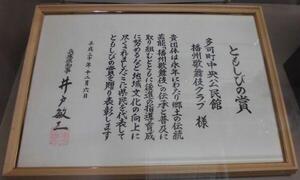 ともしびの賞
多可町中央公民館
播州歌舞伎クラブ 様
貴団体は永年にわたり郷土の伝統
芸能、播州歌舞伎の伝承と普及に
取り組むとともに後進の指導育成
に努めるなど地域文化の向上に
尽くされましたので県民を代表して
ともしびの賞を贈り表彰します
平成二十年十二月六日
兵庫県知事 井戸敏三